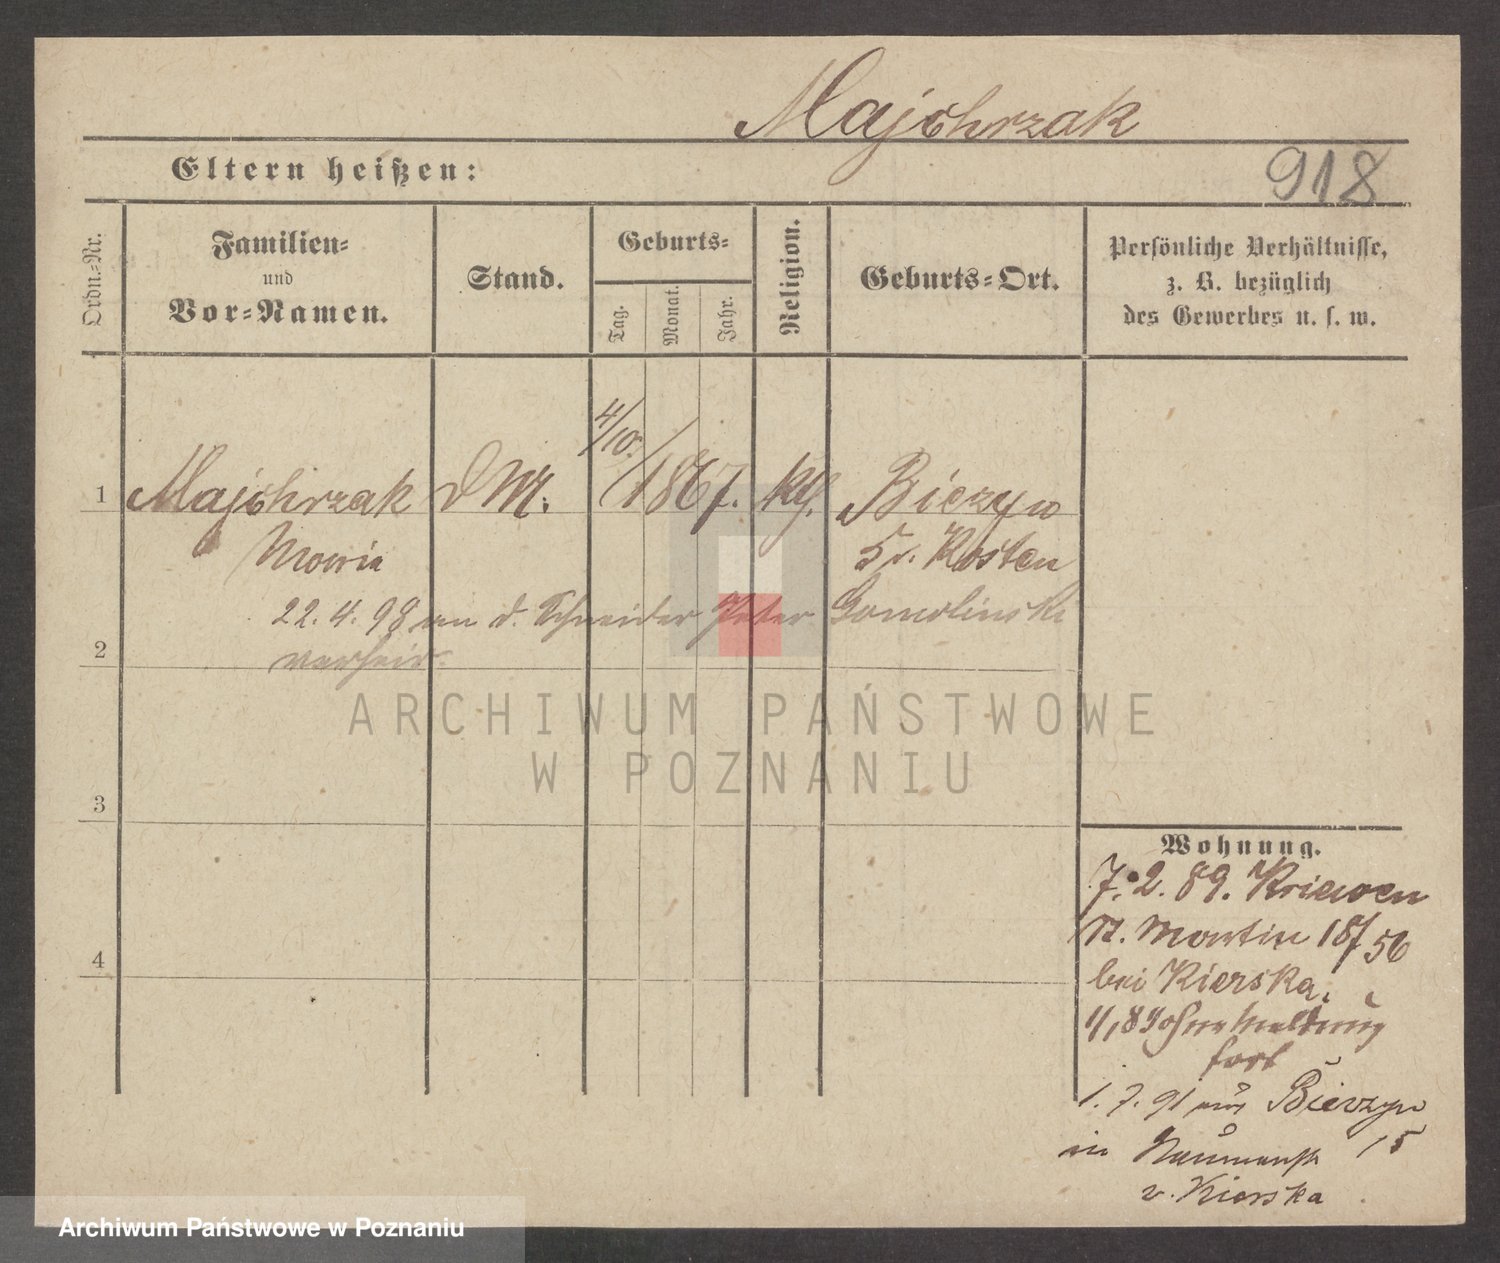 Majchrzak
918
Eltern heißen:
Ordn.-Nr.
Familien-
und
Vor-Namen.
Stand.
Geburts-
Tag.
Monat.
Jahr.
Religion.
Geburts-Ort.
Persönliche Verhältnisse,
z. B. bezüglich
des Gewerbes u. s. w.
4/10.
1 Majchrzak d M. 1867. kth. Bieczyn
Maria Kr. Kosten
22. 4. 98 an d. Schneider Peter Gomolinski
verheir.
2
3
4
Wohnung.
7. 2. 89. Kriewen
St. Martin 18/56
bei Kierska.
ohne Meldung
fort
1. 7. 91 aus Bieczyn
in Naumannstr 15
v. Kierska
ARCHIWUM PAŃSTWOWE
W POZNANIU
Archiwum Państwowe w Poznaniu